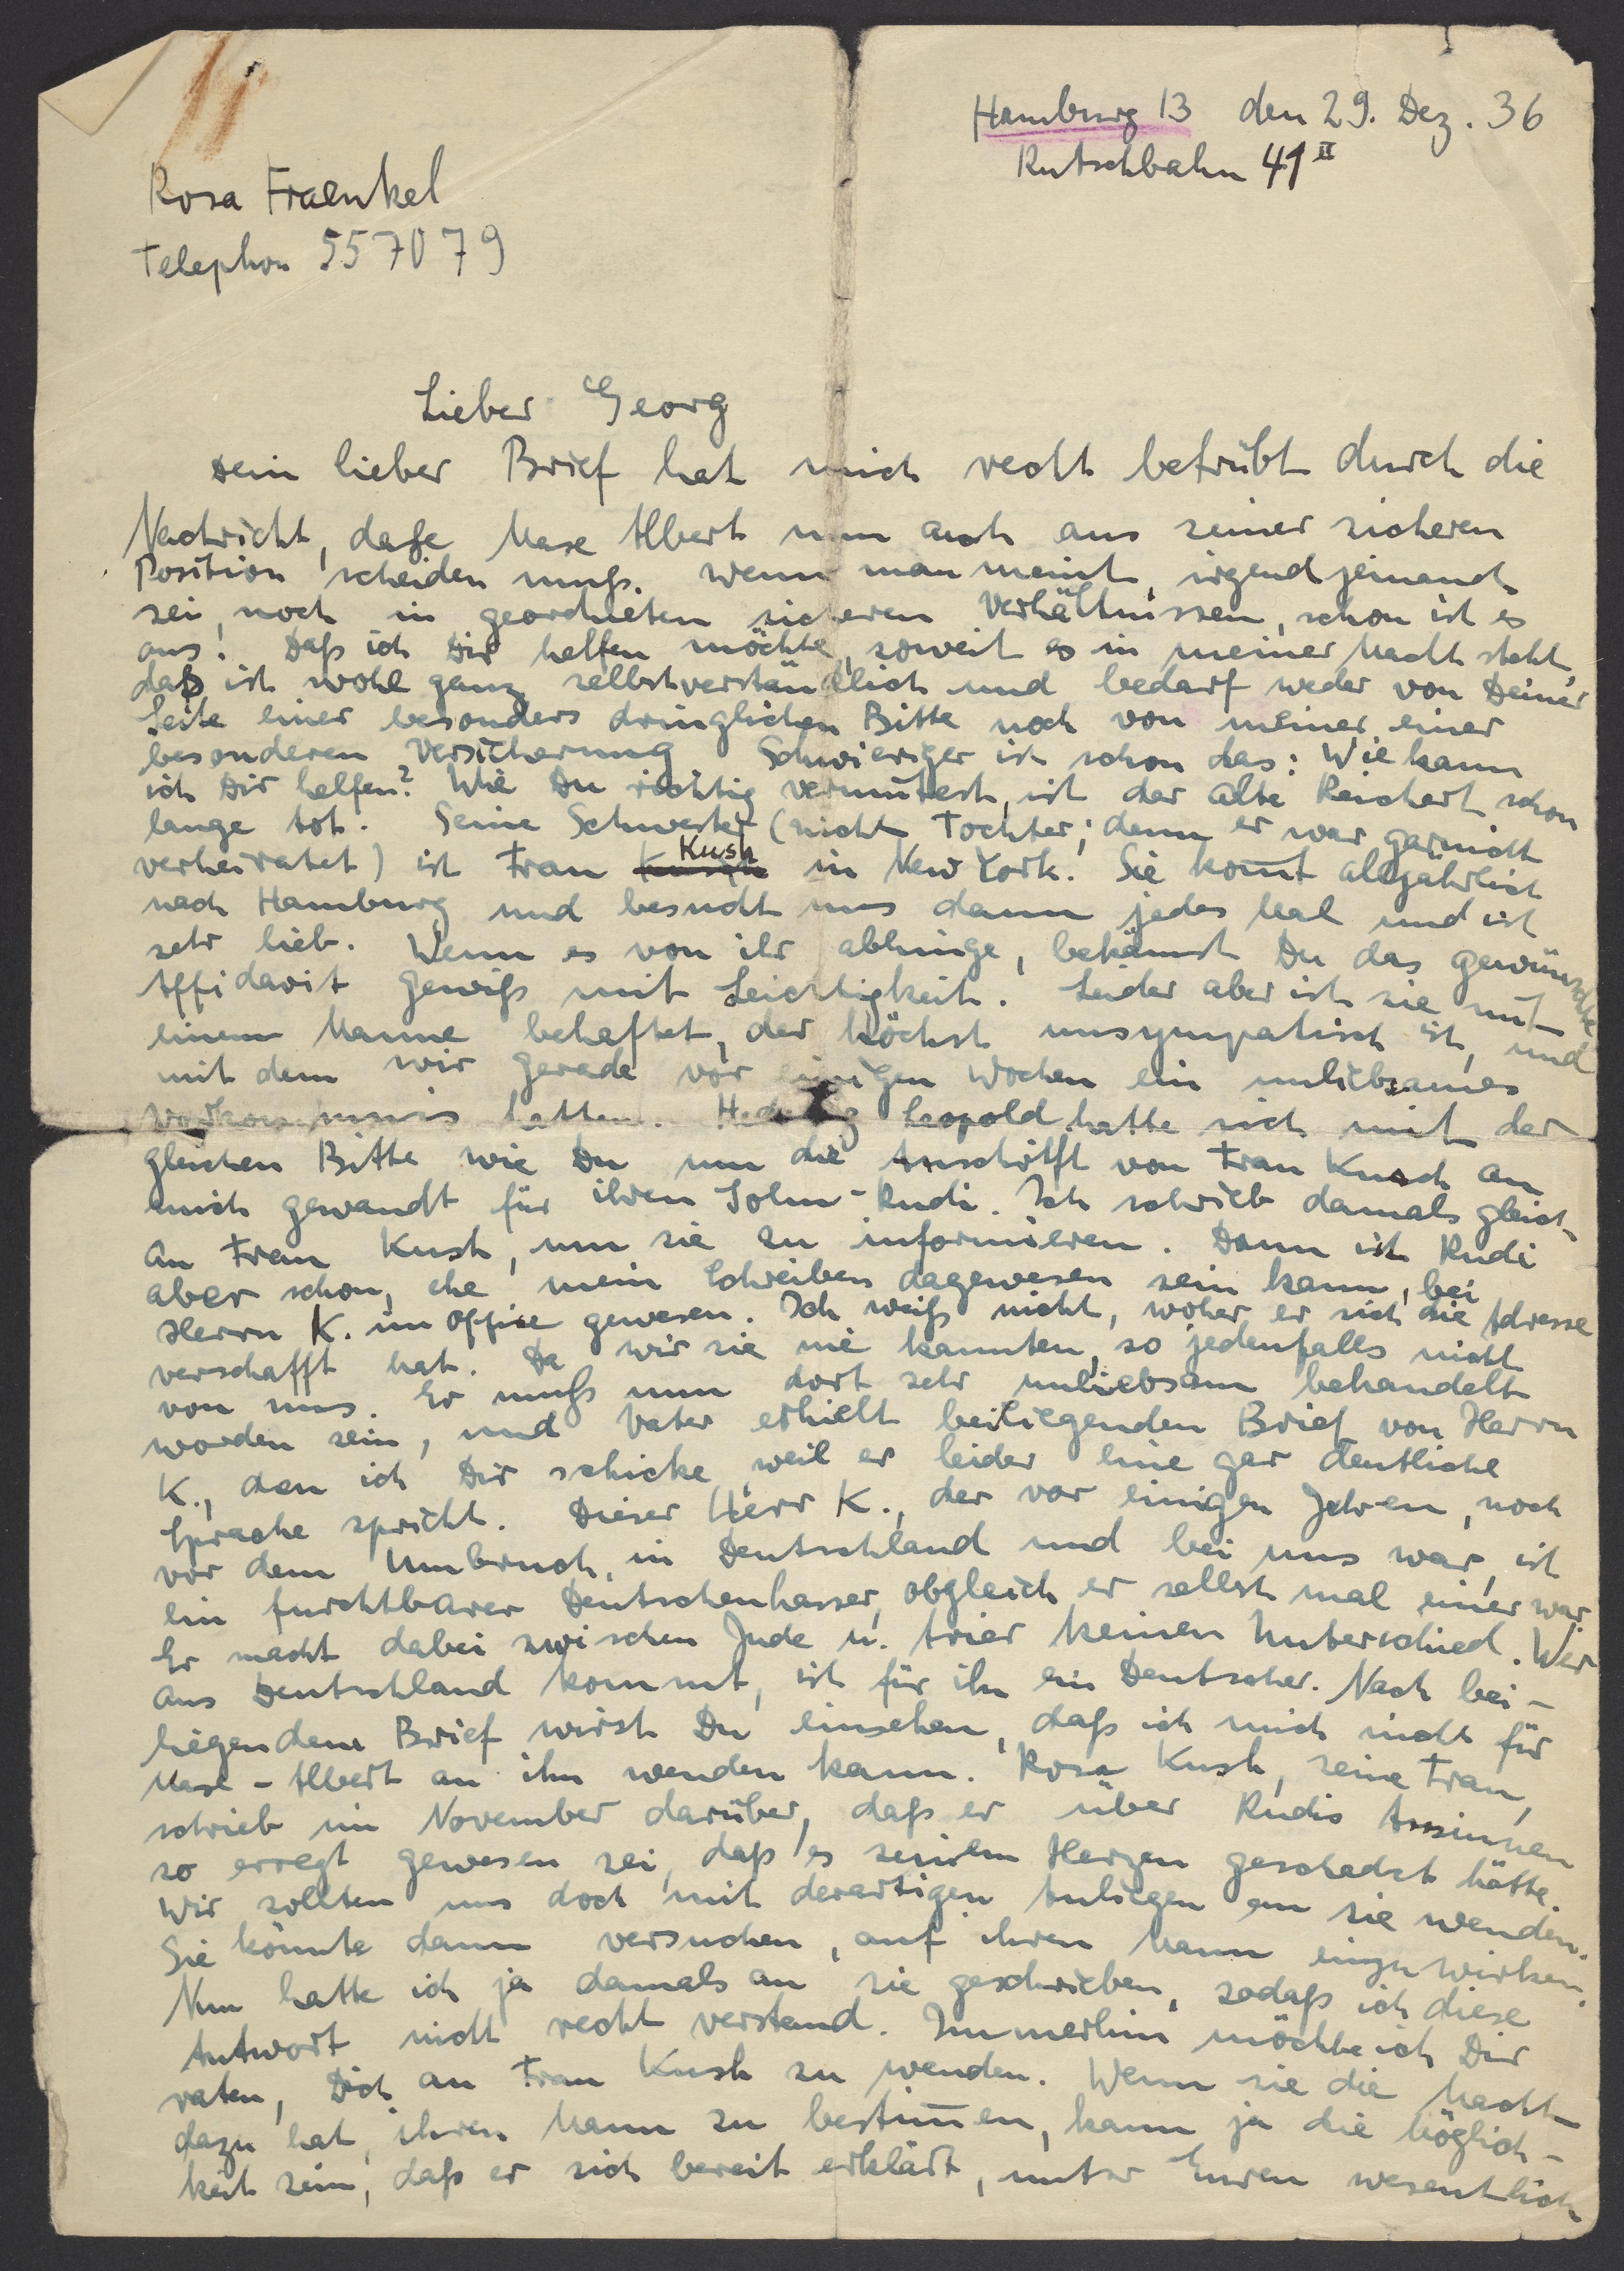 Hamburg 13 den 29. Dez. 36
Rutschbahn 41 II
Rosa Fraenkel
Telephon 557079
Lieber Georg
Dein lieber Brief hat mich recht betrübt durch die
Nachricht, dass Max Albert nun auch aus seiner sicheren
Position scheiden muß. Wenn man meint, irgend jemand
sei noch in geordneten sicheren Verhältnissen, schon ist es
aus! Daß ich Dir helfen möchte, soweit es in meiner Macht steht,
daß ist wohl ganz selbstverständlich und bedarf weder von Deiner
Seite einer besonders dringlichen Bitte noch von meiner einer
besonderen Versicherung. Schwieriger ist schon das: Wie kann
ich Dir helfen? Wie Du richtig vermutest, ist der alte Reichert schon
lange tot. Seine Schwester (nicht Tochter; denn er war garnicht
verheiratet) ist Frau Kush in New York. Sie kom̄t alljährlich
nach Hamburg und besucht uns dann jedes Mal und ist
sehr lieb. Wenn es von ihr abhinge, bekämst Du das gewünschte
Affidavit gewiß mit Leichtigkeit. Leider aber ist sie mit
einem Manne behaftet, der höchst unsympatisch ist, und
mit dem wir gerade vor einigen Wochen ein unliebsames
Vorkommnis hatten. Hedwig Leopold hatte sich mit der
gleichen Bitte wie Du um die Anschrift von Frau Kusch an
mich gewandt für ihren Sohn Rudi. Ich schrieb damals gleich
an Frau Kush, um sie zu informieren. Dann ist Rudi
aber schon, ehe mein Schreiben dagewesen sein kann, bei
Herrn K. im Office gewesen. Ich weiß nicht, woher er sich die Adresse
verschafft hat. Da wir sie nie kannten, so jedenfalls nicht
von uns. Er muß nun dort sehr unliebsam behandelt
worden sein, und Vater erhielt beiliegenden Brief von Herrn
K., den ich Dir schicke, weil er leider eine gar deutliche
Sprache spricht. Dieser Herr K., der vor einigen Jahren, noch
vor dem Umbruch, in Deutschland und bei uns war, ist
ein furchtbarer Deutschenhasser, obgleich er selbst mal einer war.
Er macht dabei zwischen Jude u. Arier keinen Unterschied. Wer
aus Deutschland kommt, ist für ihn ein Deutscher. Nach bei-
liegendem Brief wirst Du einsehen, daß ich mich nicht für
Max-Albert an ihn wenden kann. Rosa Kush, seine Frau,
schrieb im November darüber, daß er über Rudis Ansinnen
so erregt gewesen sei, daß es seinem Herzen geschadet hätte.
Wir sollten uns doch mit derartigen Anliegen an sie wenden.
Sie könnte dann versuchen, auf ihren Mann einzuwirken.
Nun hatte ich ja damals an sie geschrieben, sodaß ich diese
Antwort nicht recht verstand. Immerhin möchte ich Dir
raten, Dich an Frau Kush zu wenden. Wenn sie die Macht
dazu hat, ihren Mann zu bestim̄en, kann ja die Möglich-
keit sein, daß er sich bereit erklärt, unter Euren wesentlich